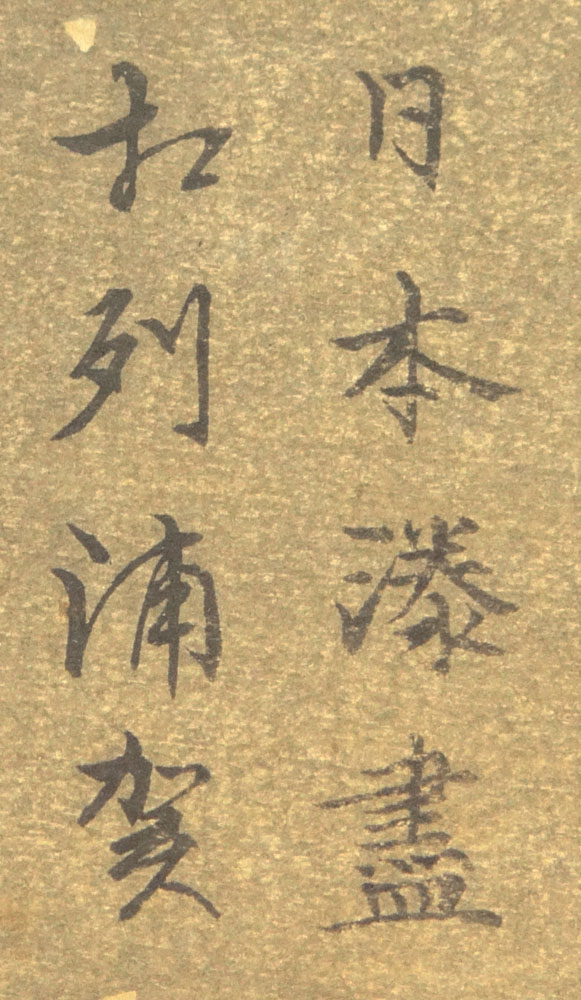 日本漆盡
扛列浦賀